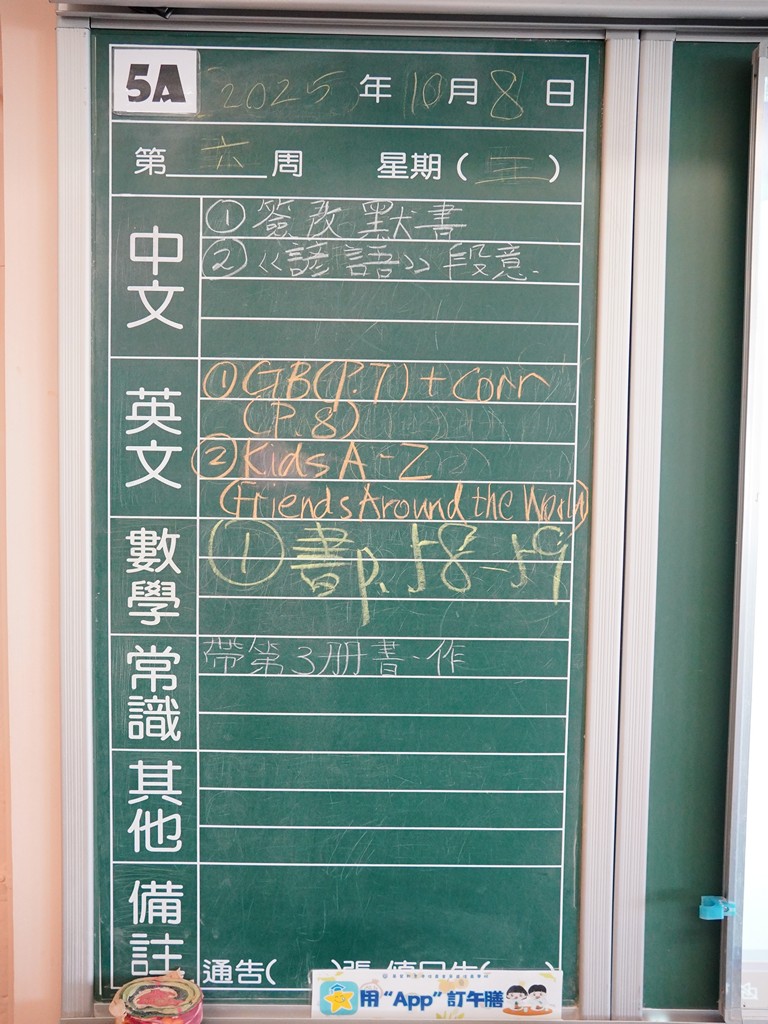 5A 2025年10月8日
第六周 星期(三)
中文
①簽改默書
②《諺語》段意.
英文
①GB(P.7)+Corr
(P.8)
②Kids A-Z
(Friends Around the World)
數學
①書p.58-59
常識
帶第3册書、作
其他
備註
通告( )張
用“App”訂午膳